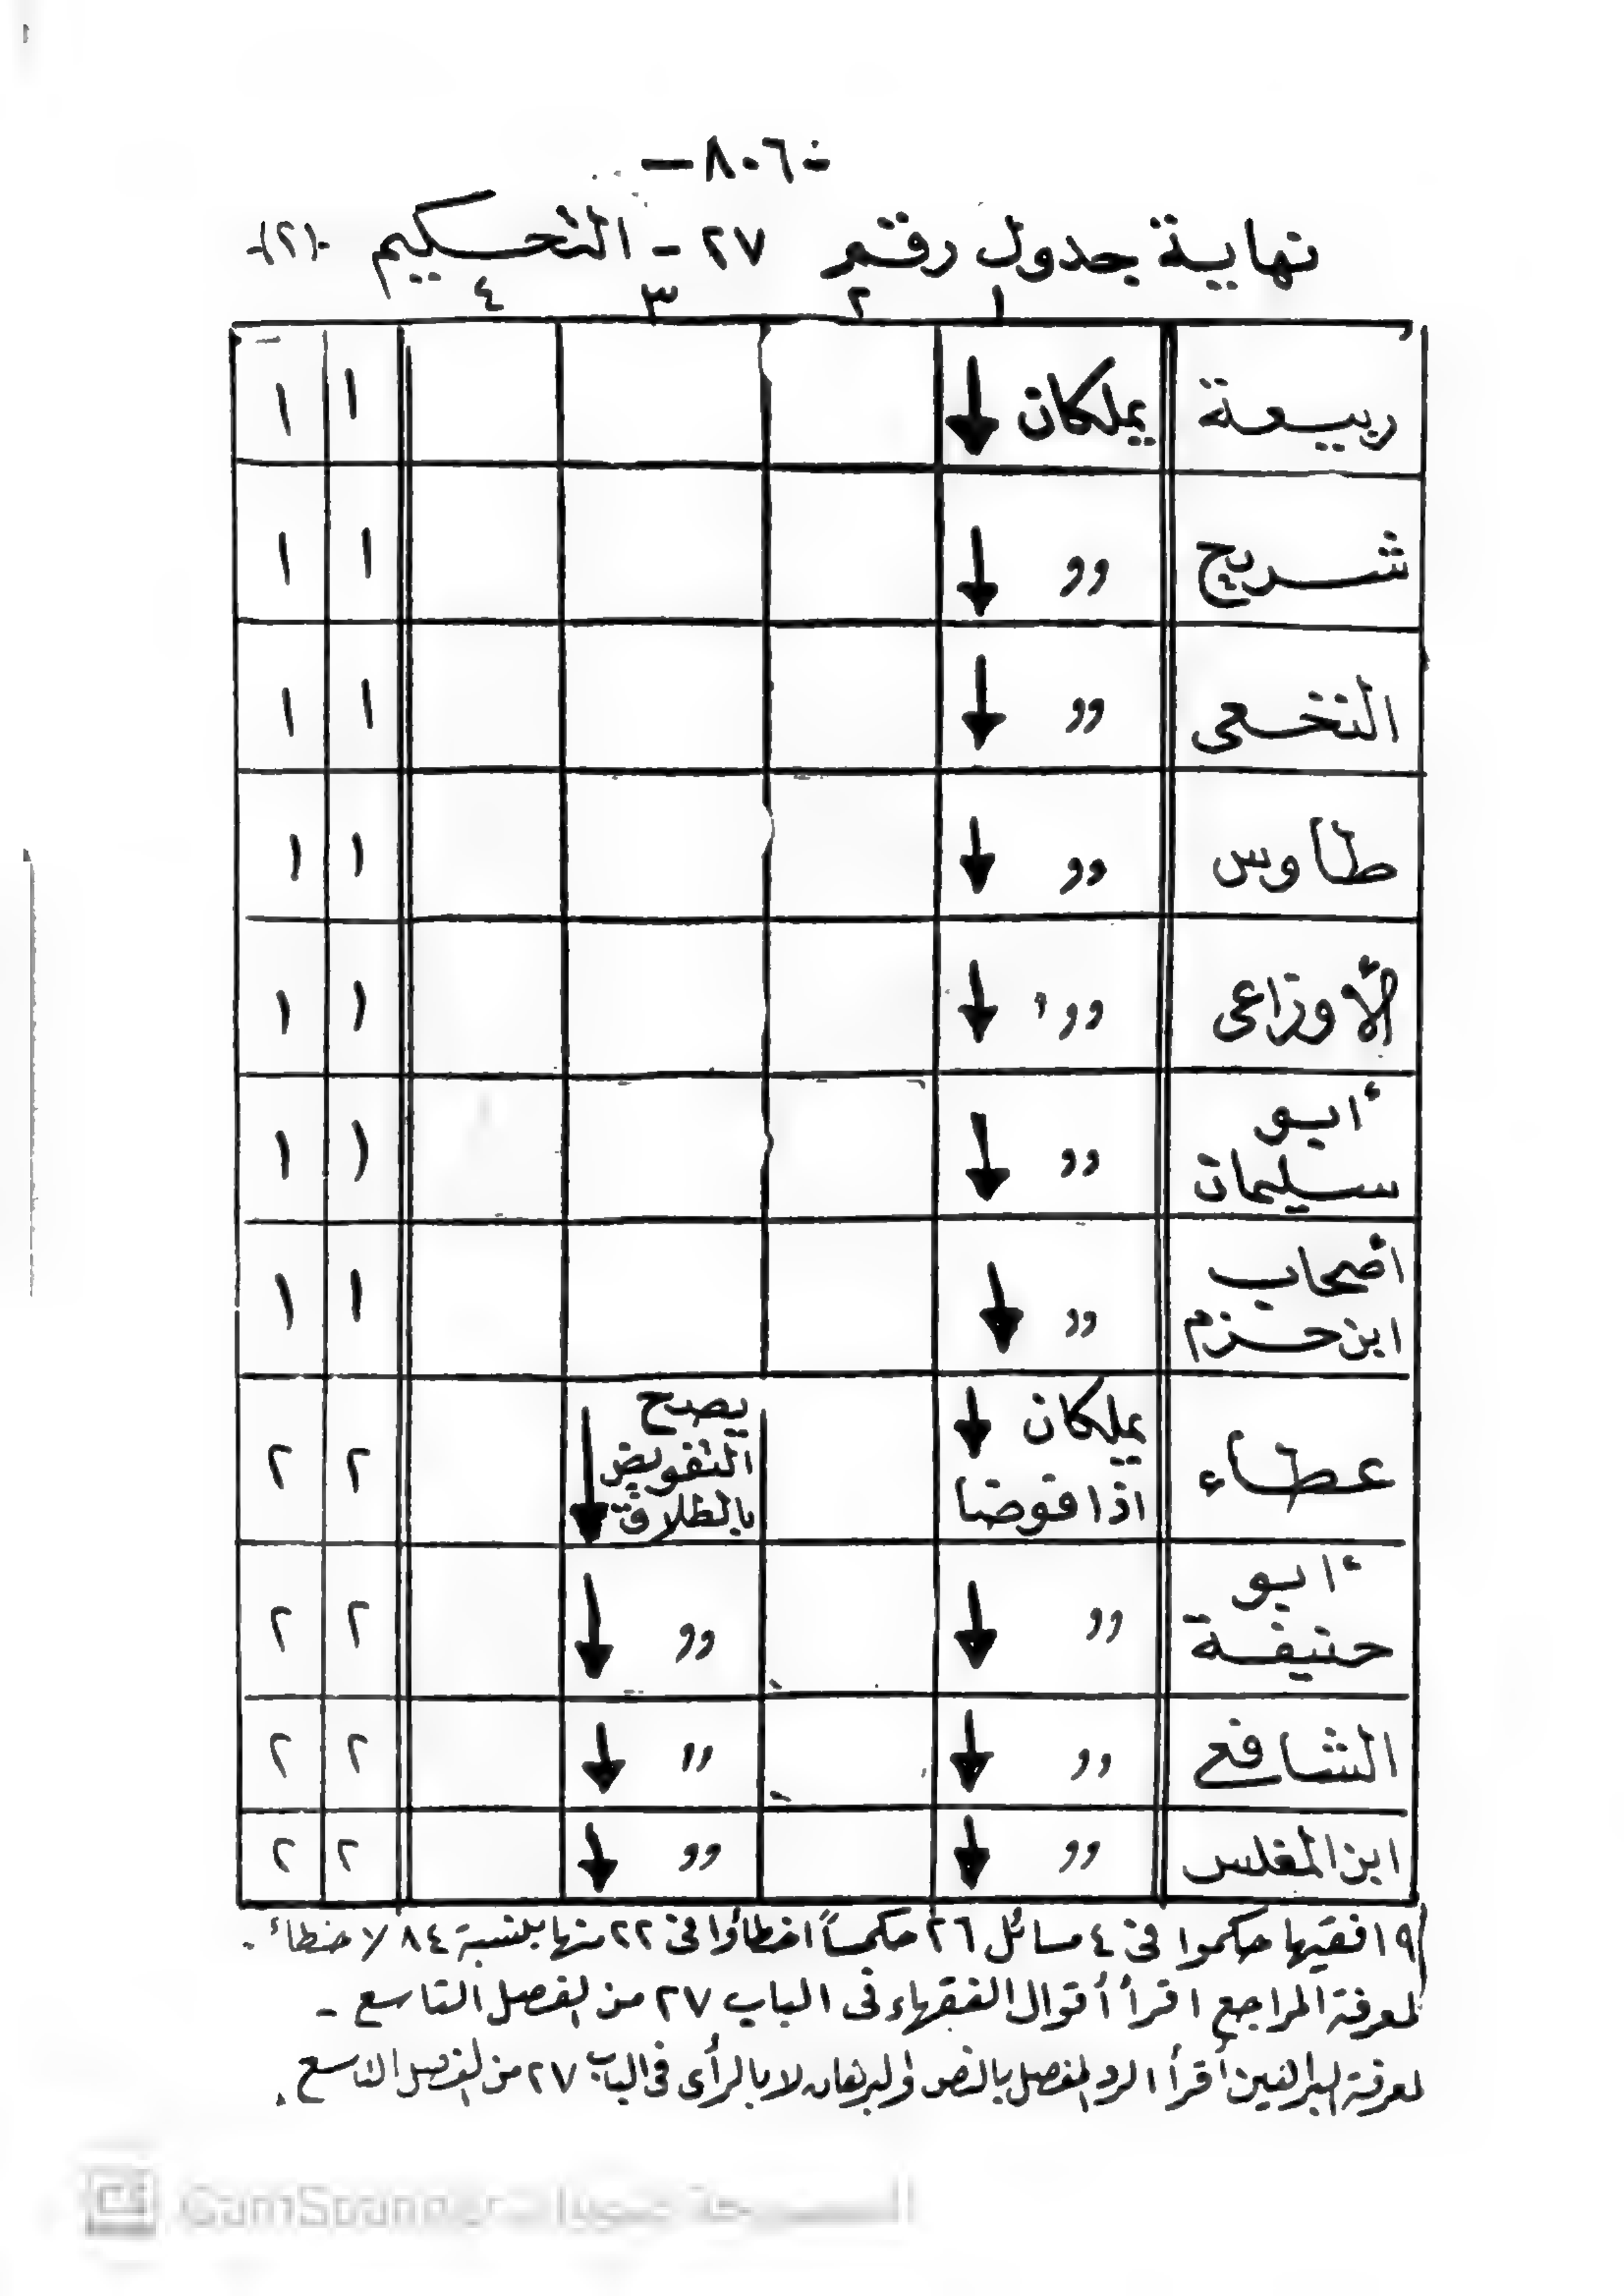 -٨٠٦-
نهاية جدول رقم ٢٧ - التحكيم -(٢)-
١ ٢ ٣ ٤
ربيعة يملكان ↓ ١ ١
شريح ,, ↓ ١ ١
النخعى ,, ↓ ١ ١
طاوس ,, ↓ ١ ١
الأوزاعى ,, ↓ ١ ١
أبو
سليمان ,, ↓ ١ ١
أصحاب
ابن حزم ,, ↓ ١ ١
عطاء يملكان ↓
اذا فوضا
يصح
التفويض
بالطلاق ↓ ٢ ٢
أبو
حنيفة ,, ↓ ,, ↓ ٢ ٢
الشافعي ,, ↓ ,, ↓ ٢ ٢
ابن المغلس ,, ↓ ,, ↓ ٢ ٢
١٩ فقيها حكموا فى ٤ مسائل ٢٦ حكماً اخطأوا فى ٢٢ منها بنسبة ٨٤ لا خطاء.
لمعرفة المراجع اقرأ أقوال الفقهاء فى الباب ٢٧ من الفصل التاسع -
لمعرفة البراهين أقرأ الرد المفصل بالنص والبرهان لا بالرأى فى الباب ٢٧ من الفصل التاسع.
الممسوحة ضوئيا بـ CamScanner